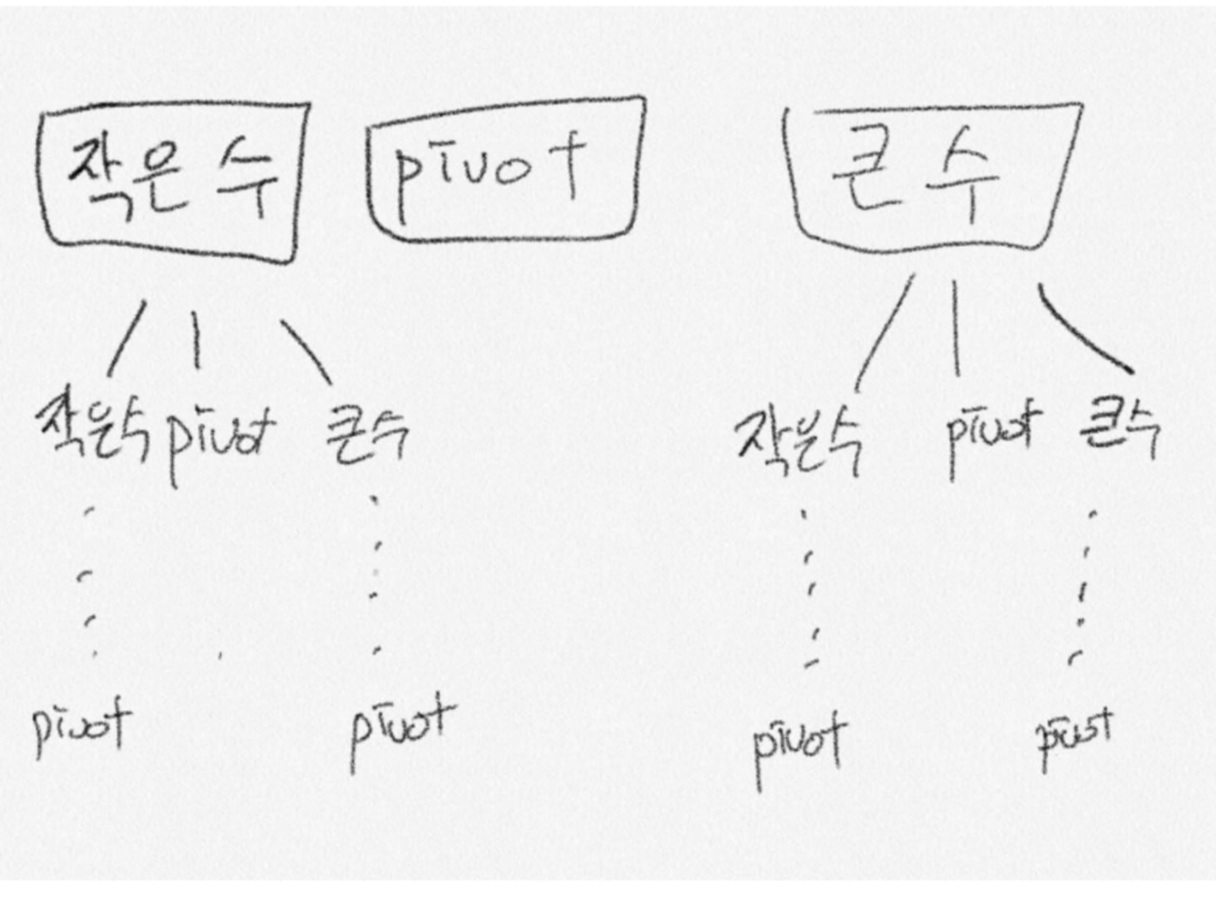 작은 수 pivot 큰 수
작은수 pivot 큰수 작은수 pivot 큰수
pivot pivot pivot pivot